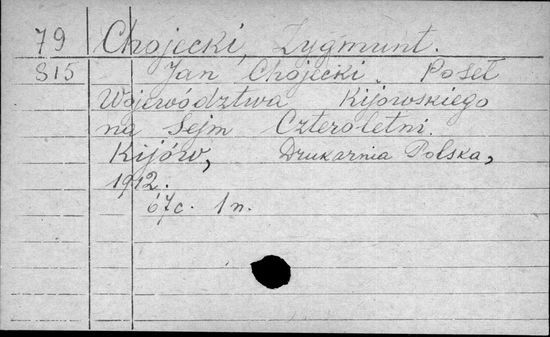 79 Chojecki, Zygmunt.
815 Jan Chojecki. Poseł
Województwa Kijowskiego
na Sejm Czteroletni.
Kijów, Drukarnia Polska,
1912.
67c. 1 n.